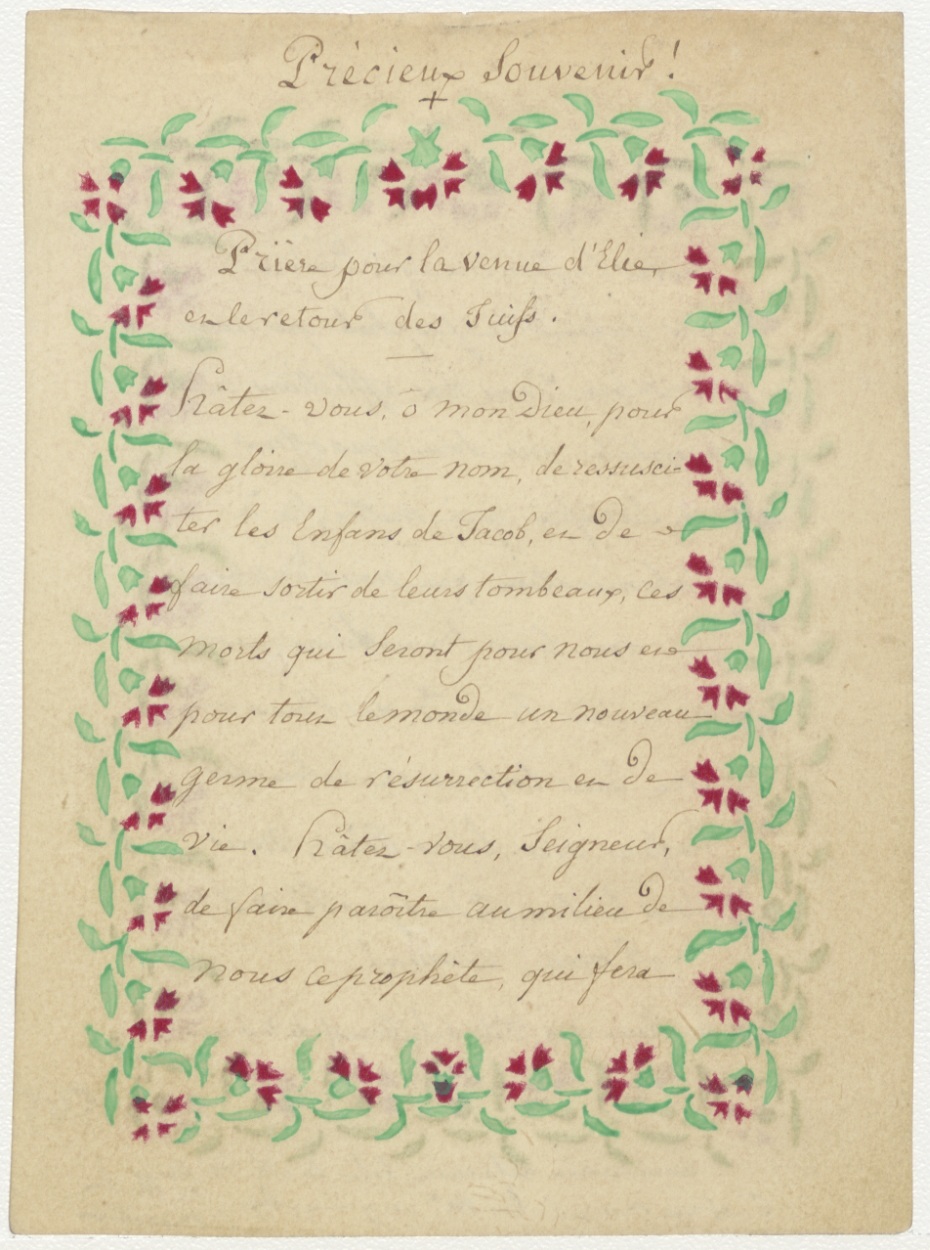 Précieux Souvenir !
+
Prière pour la venue d'Elie,
et le retour des Juifs.
Hâtez-vous, ô mon Dieu, pour
la gloire de votre nom, de ressusci-
ter les Enfans de Jacob, et de
faire sortir de leurs tombeaux, ces
morts qui seront pour nous et
pour tout le monde un nouveau
germe de résurrection et de
vie. Hâtez-vous, Seigneur,
de faire paroître au milieu de
nous ce prophète, qui fera